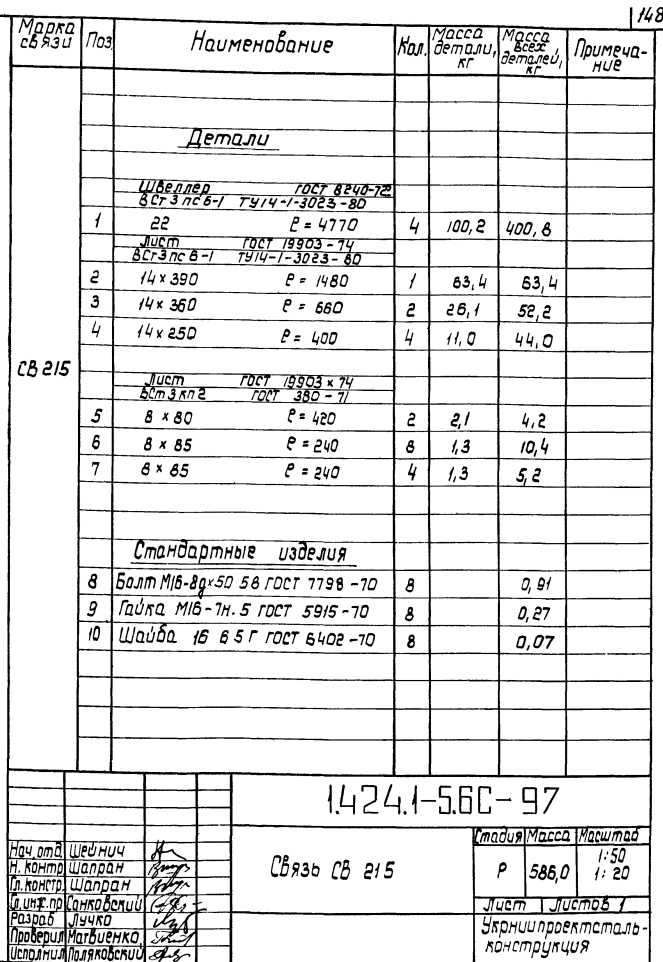 148
Марка связи Поз. Наименование Кол. Масса детали, кг Масса всех деталей, кг Примеча-ние
Детали
Швеллер ГОСТ 8240-72
ВСт 3 пс 6-1 ТУ14-1-3023-80
1 22 ℓ = 4770 4 100,2 400,8
Лист ГОСТ 19903-74
ВСт3пс 6-1 ТУ14-1-3023-80
2 14 x 390 ℓ = 1480 1 63,4 63,4
3 14 x 360 ℓ = 660 2 26,1 52,2
4 14 x 250 ℓ = 400 4 11,0 44,0
СВ 215
Лист ГОСТ 19903 x 74
ВСт 3 кп 2 ГОСТ 380-71
5 8 x 80 ℓ = 420 2 2,1 4,2
6 8 x 85 ℓ = 240 8 1,3 10,4
7 8 x 85 ℓ = 240 4 1,3 5,2
Стандартные изделия
8 Болт М16-8gx50 58 ГОСТ 7798-70 8 0,91
9 Гайка М16-7Н.5 ГОСТ 5915-70 8 0,27
10 Шайба 16 65Г ГОСТ 6402-70 8 0,07
1.424.1-5.6С-97
Нач. отд. Шейнич
Н. контр Шапран
Гл. констр. Шапран
Гл. инж. пр Санковский
Разраб Лучко
Проверил Матвиенко
Исполнил Поляковский
Связь СВ 215
Стадия Масса Масштаб
Р 586,0 1:50
1:20
Лист Листов 1
Укрниипроектсталь-
конструкция